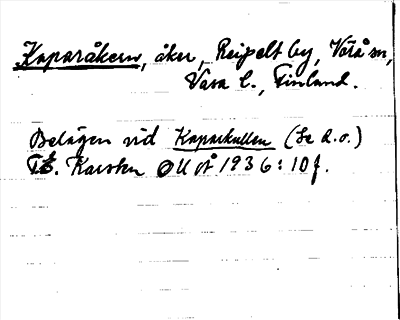 Kaparåkern, åker, Reipelt by, Vörå sn,
Vasa l., Finland.
Belägen vid Kaparkullen (Se d. o.)
T.E. Karsten OUÅ 1936: 10 f.